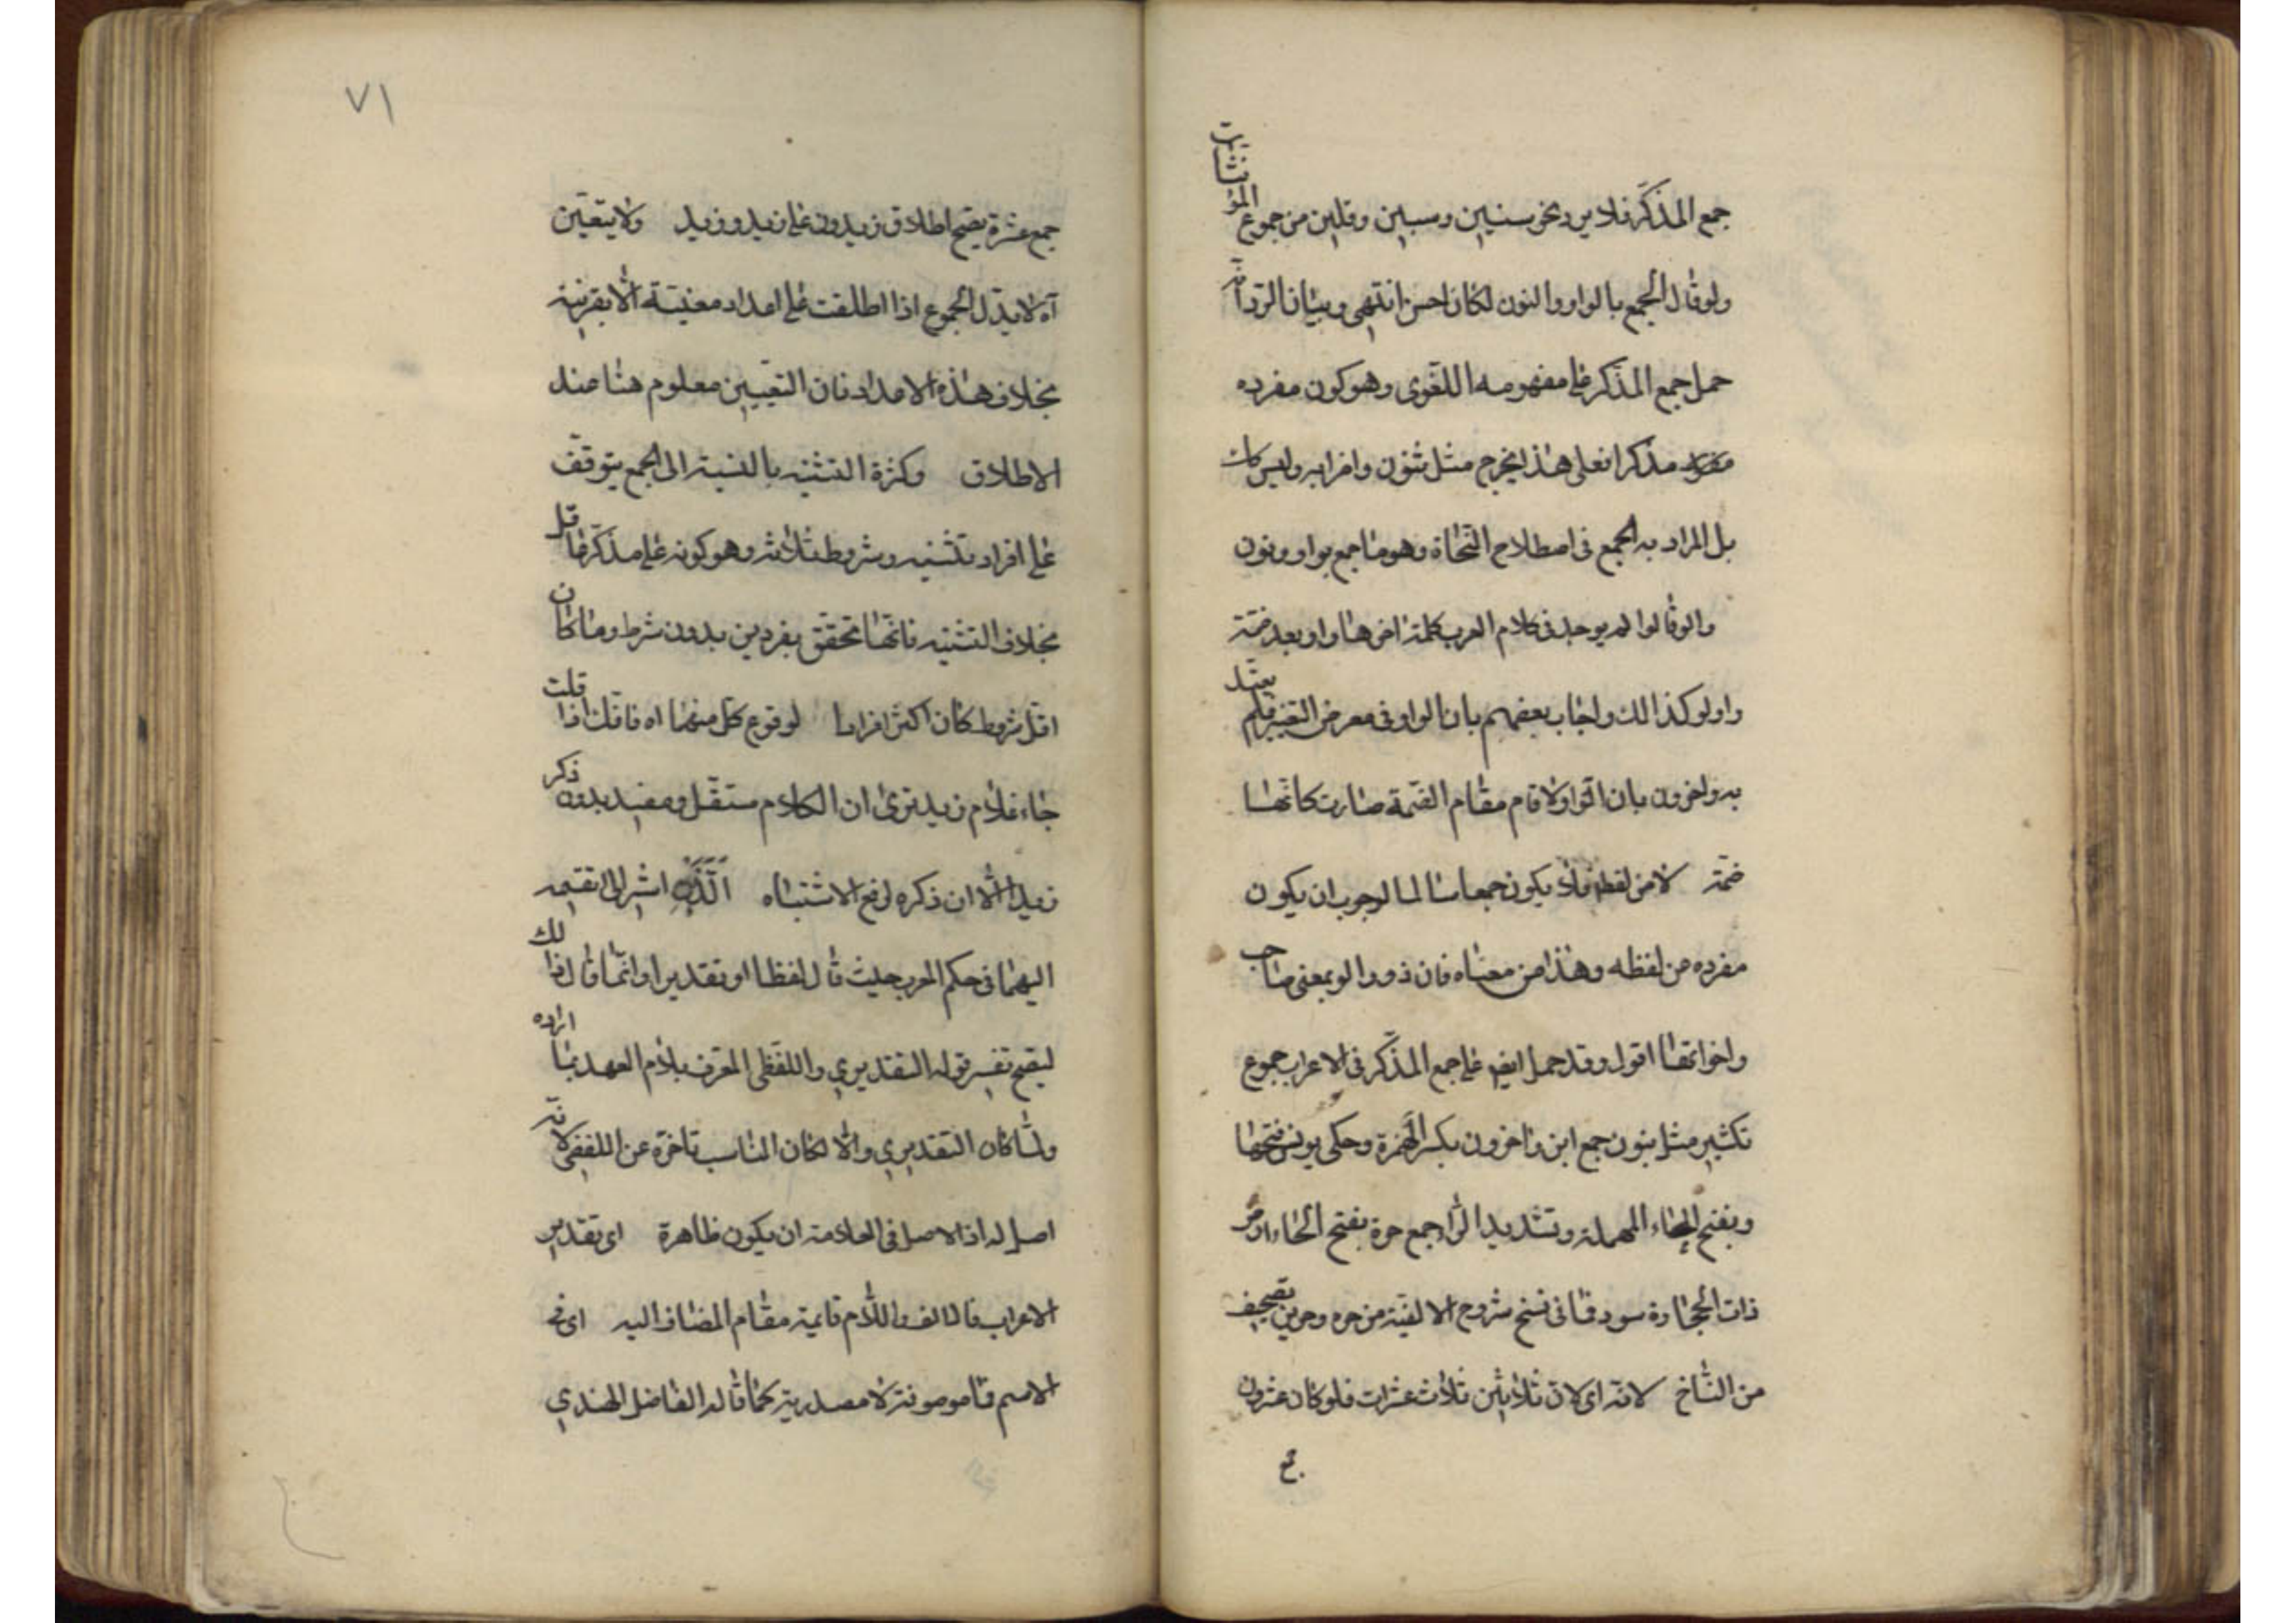 جمع المذكّر فلا يرد نحو سنين وسبين وقلين من جموع المؤنثات
ولو قال الجمع بالواو والنون لكان احسن انتهى وبيان الرد انّه
حمل جمع المذكر على مفهومه اللغوى وهو كون مفرده
مذكرا فعلى هذا يخرج مثل ثبون واضرابه وليس كك
بل المراد به الجمع فى اصطلاح النحاة وهو ما جمع بواو ونون
والو قالوا لم يوجد فى كلام العرب كلمة اخرها واو بعد ضمّة
واولو كذالك واجاب بعضهم بان الواو فى معرض التغير فلم يعتد
به واخرون بان الواو لا قام مقام الضمة صارت كانّها
ضمّة لا من لفظه فلا يكون جمعا سالما لوجوب ان يكون
مفرده من لفظه وهذا من معناه فان ذو والو بمعنى صاحب
واخواتها اقول وقد حمل ايض على جمع المذكّر فى الاعراب جموع
تكثير مثل بنون جمع ابن واحرون بكسر الهمزة وحكى يونس فتحها
وبفتح الحاء المهملة وتشديد الرّا جمع حرة بفتح الحاء ارض
ذات الحجارة سود فما فى نسخ شروح الالفية من حره وحرين تصحيف
من النّساخ لانه اى لان ثلاثين ثلاث عشرات فلو كان عشرون
جمع
٧١
جمع عشرة يصح اطلاق زيدون على زيد وزيد ولا يتعيّن
آه لا يدّل الجموع اذا اطلقت على اعداد معنيّة الّا بقرنية
بخلاف هذه الاعداد فان التعيين معلوم هنا عند
الاطلاق وكثرة التثنيه بالنسبة الى الجمع يتوقف
على افراد تكثيره وشروط ثلاثة وهو كونه على مذكّر عاقل
بخلاف التثنيه فانها تحقق بفردين بدون شرط وما كان
اقل شروط كان اكثر افرادا لوقوع كل منهما اه فانّك اذا قلت
جاء غلام زيد ترى ان الكلام مستقل ومفيد بدون ذكر
زيد الّا ان ذكره لرفع الاشتباه الّذين اشير الى تقسيمه
اليهما فى حكم المعرب حيث قال لفظا او تقديرا وانّما قال ذالك
ليصح تفسير قوله التقديري واللفظى المعرف بلام العهد بما اراده
ولمّا كان التقديري والّا لكان المناسب تاخره عن اللفظى لانّه
اصل له اذ الاصل فى العلامة ان يكون ظاهرة اى تقدير
الاعراب فالالف واللّام قايمة مقام المضاف اليه اى فى
الاسم فما موصوفة لا مصدرية كما قاله الفاضل الهندي